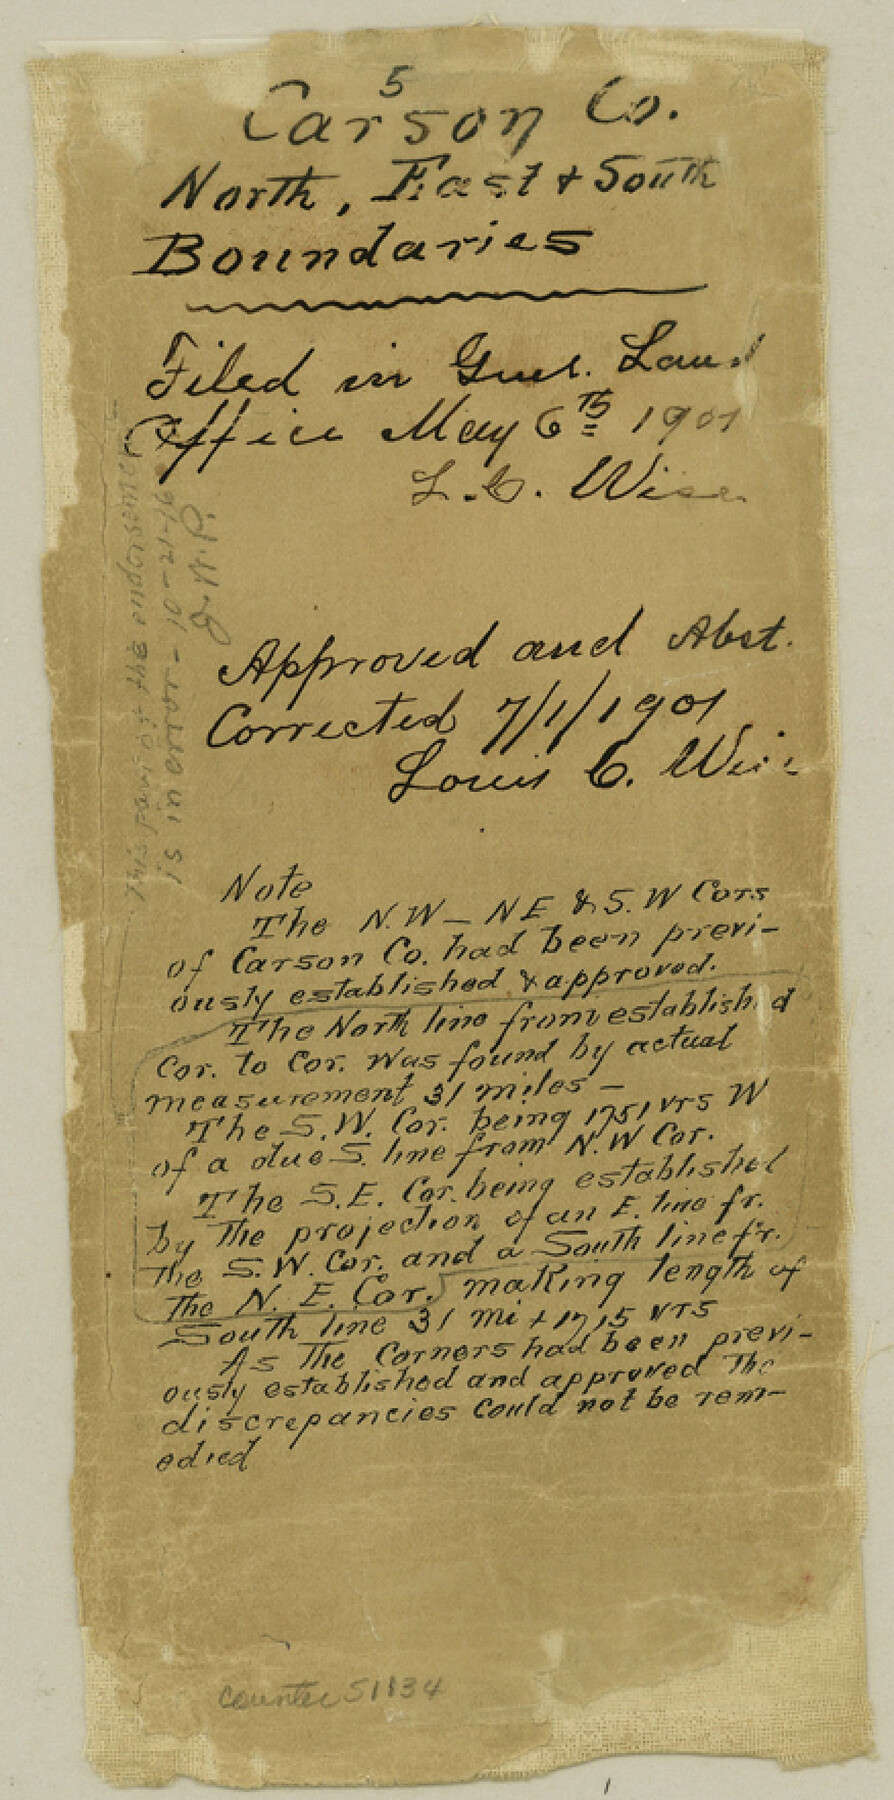 5
Carson Co.
North, East & South
Boundaries
Filed in Genl. Land
Office May 6th 1901
L. C. Wise
Approved and Abst.
Corrected 7/1/1901
Louis C. Wise
Note
The N.W — NE & S.W Cors
of Carson Co. had been previ-
ously established & approved.
The North line from established
Cor. to Cor. was found by actual
measurement 31 miles —
The S.W. Cor. being 1751 vrs W
of a due S. line from N.W Cor.
The S.E. Cor. being established
by the projection of an E. line fr.
the S.W. Cor. and a South line fr.
the N. E. Cor. making length of
South line 31 mi + 1715 vrs
As the Corners had been previ-
ously established and approved the
discrepancies could not be rem-
edied
This part of the endorsement
is in error - 10-21-16
J.H.P.
counter 51834
1